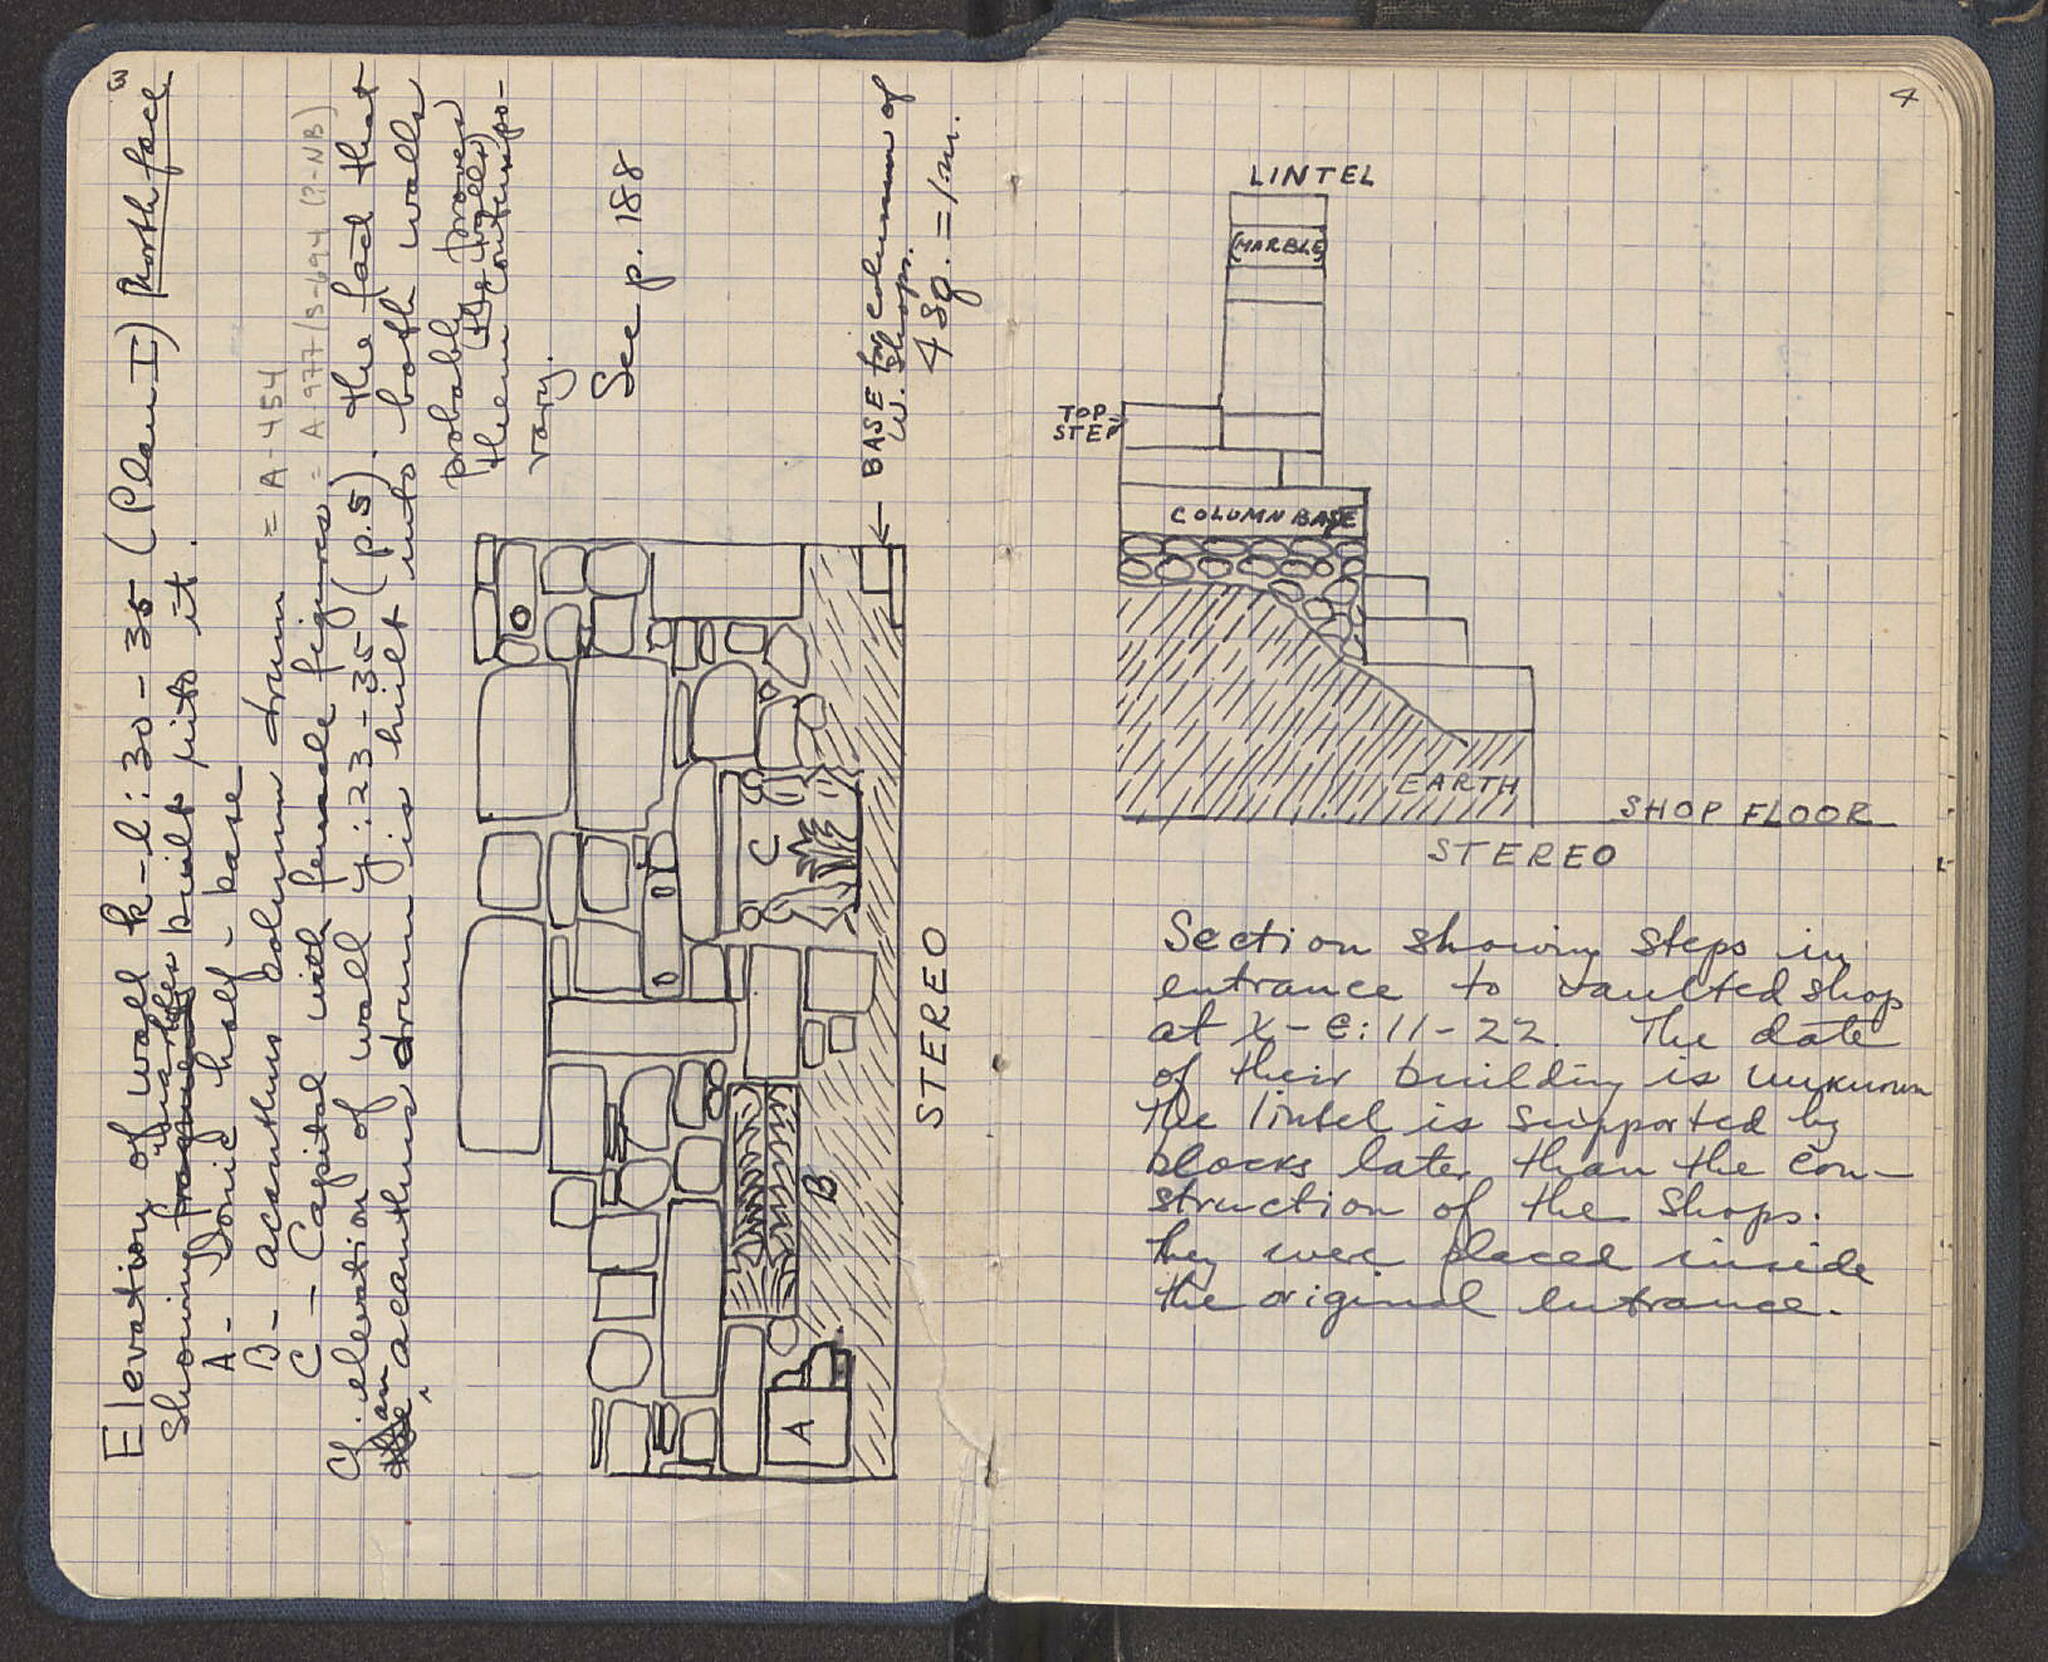 3
Elevation of wall k-l:30-35 (Plan I) North face
Showing marbles built into it.
A- Ionic half-base
B- acanthus column drum = A-454
C- Capital with female figures = A-977/S-694 (?-NB)
Cf. elevation of wall y:23-35 (p.5). the fact that
an acanthus drum is built into both walls
probably proves
(the walls)
them contempo-
rary.
See p. 188
← BASE for column of
W. Shops.
4 sq. = 1 m.
C
B
A
STEREO
4
LINTEL
(MARBLE)
TOP
STEP
COLUMN BASE
EARTH
SHOP FLOOR
STEREO
Section showing steps in
entrance to vaulted shop
at X-E:11-22. The date
of their building is unknown
The lintel is supported by
blocks later than the con-
struction of the Shops.
They were placed inside
the original entrance.